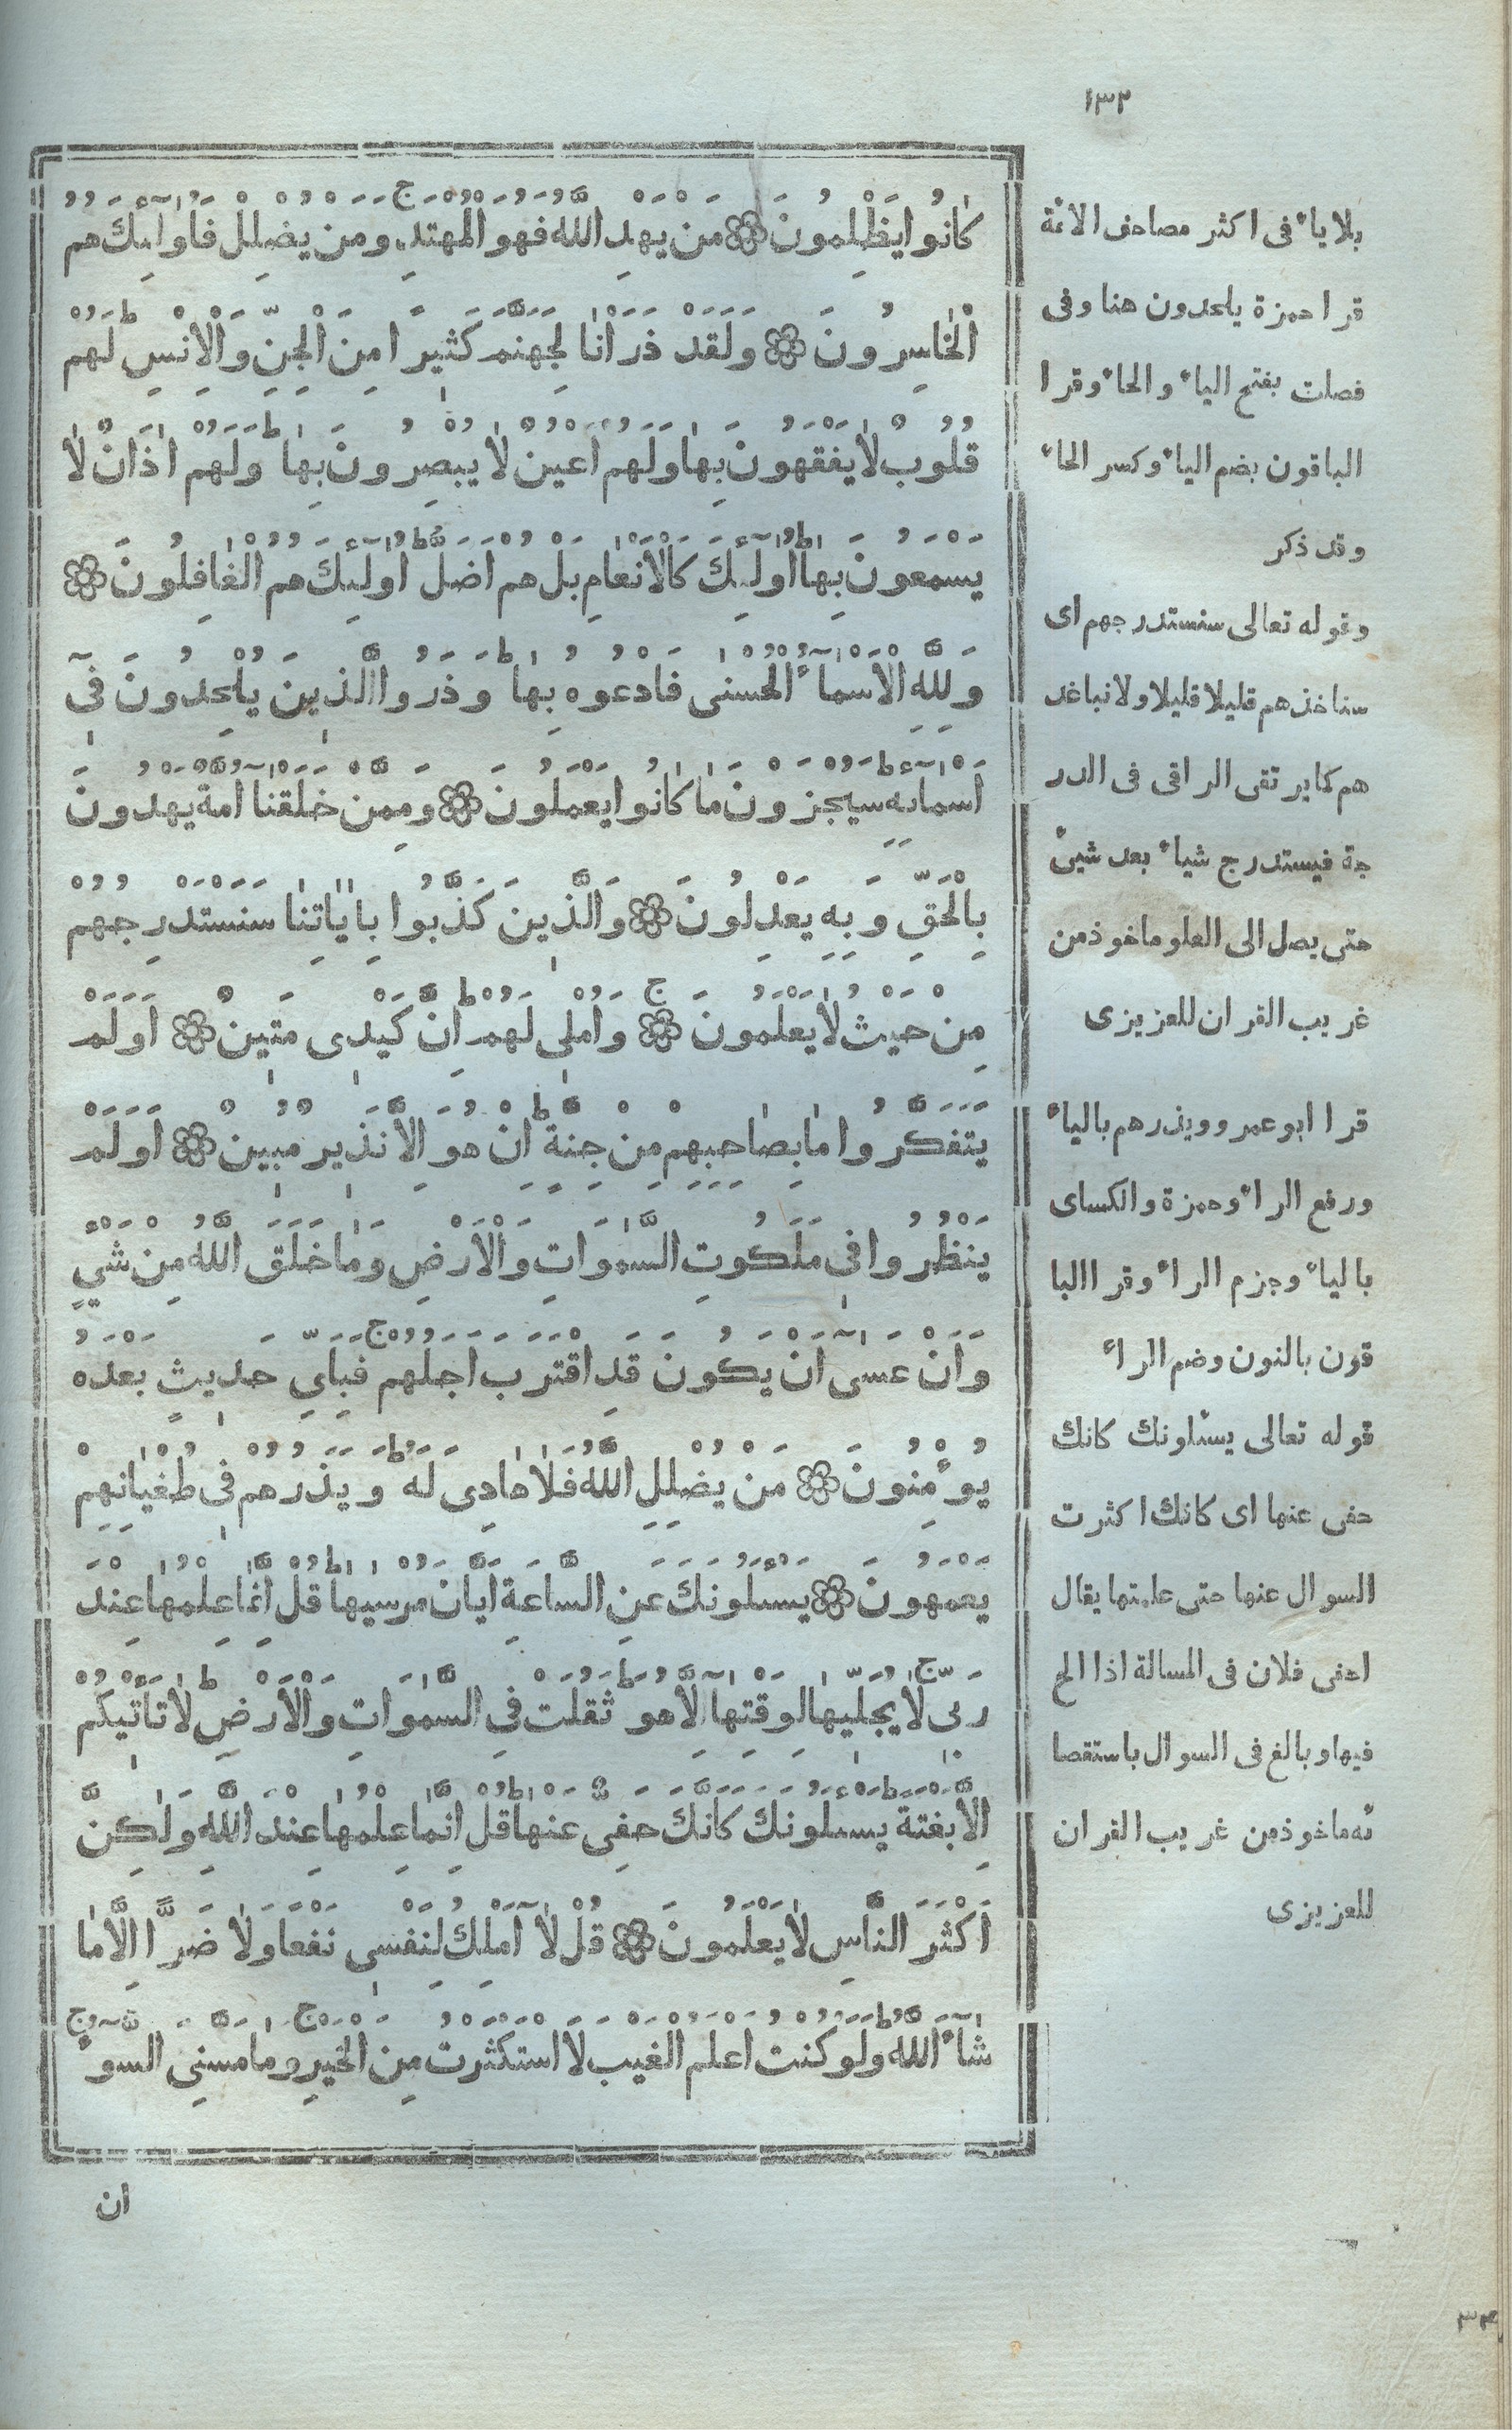 ١٣٢
كَانُوا يَظْلِمُونَ ۞ مَنْ يَهْدِ اللَّهُ فَهُوَ الْمُهْتَدِ ج وَمَنْ يُضْلِلْ فَاُولٰٓئِكَ هُمُ
الْخَاسِرُونَ ۞ وَلَقَدْ ذَرَاْنَا لِجَهَنَّمَ كَثِيرًا مِنَ الْجِنِّ وَالْاِنْسِ ط لَهُمْ
قُلُوبٌ لَا يَفْقَهُونَ بِهَا وَلَهُمْ اَعْيُنٌ لَا يُبْصِرُونَ بِهَا ط وَلَهُمْ اٰذَانٌ لَا
يَسْمَعُونَ بِهَا ط اُولٰٓئِكَ كَالْاَنْعَامِ بَلْ هُمْ اَضَلُّ ط اُولٰٓئِكَ هُمُ الْغَافِلُونَ ۞
وَلِلَّهِ الْاَسْمَآءُ الْحُسْنٰى فَادْعُوهُ بِهَا ط وَذَرُوا الَّذِينَ يُلْحِدُونَ فِىٓ
اَسْمَآئِهِ ط سَيُجْزَوْنَ مَا كَانُوا يَعْمَلُونَ ۞ وَمِمَّنْ خَلَقْنَآ اُمَّةٌ يَهْدُونَ
بِالْحَقِّ وَبِهِ يَعْدِلُونَ ۞ وَالَّذِينَ كَذَّبُوا بِاٰيَاتِنَا سَنَسْتَدْرِجُهُمْ
مِنْ حَيْثُ لَا يَعْلَمُونَ ج ۞ وَاُمْلِى لَهُمْ ط اِنَّ كَيْدِى مَتِينٌ ۞ اَوَلَمْ
يَتَفَكَّرُوا مَا بِصَاحِبِهِمْ مِنْ جِنَّةٍ ط اِنْ هُوَ اِلَّا نَذِيرٌ مُبِينٌ ۞ اَوَلَمْ
يَنْظُرُوا فِى مَلَكُوتِ السَّمٰوَاتِ وَالْاَرْضِ وَمَا خَلَقَ اللَّهُ مِنْ شَيْءٍ
وَاَنْ عَسٰىٓ اَنْ يَكُونَ قَدِ اقْتَرَبَ اَجَلُهُمْ ج فَبِاَيِّ حَدِيثٍ بَعْدَهُ
يُؤْمِنُونَ ۞ مَنْ يُضْلِلِ اللَّهُ فَلَا هَادِىَ لَهُ ط وَيَذَرُهُمْ فِى طُغْيَانِهِمْ
يَعْمَهُونَ ۞ يَسْـَٔلُونَكَ عَنِ السَّاعَةِ اَيَّانَ مُرْسٰيهَا ط قُلْ اِنَّمَا عِلْمُهَا عِنْدَ
رَبِّى ج لَا يُجَلِّيهَا لِوَقْتِهَآ اِلَّا هُوَ ط ثَقُلَتْ فِى السَّمٰوَاتِ وَالْاَرْضِ ط لَا تَاْتِيكُمْ
اِلَّا بَغْتَةً ط يَسْـَٔلُونَكَ كَاَنَّكَ حَفِىٌّ عَنْهَا ط قُلْ اِنَّمَا عِلْمُهَا عِنْدَ اللَّهِ وَلٰكِنَّ
اَكْثَرَ النَّاسِ لَا يَعْلَمُونَ ۞ قُلْ لَآ اَمْلِكُ لِنَفْسِى نَفْعًا وَلَا ضَرًّا اِلَّا مَا
شَآءَ اللَّهُ ط وَلَوْ كُنْتُ اَعْلَمُ الْغَيْبَ لَاسْتَكْثَرْتُ مِنَ الْخَيْرِ ج وَمَا مَسَّنِىَ السُّوءُ ج
ان
بلا ياء فى اكثر مصاحف الائمة
قرا حمزة يلحدون هنا وفى
فصلت بفتح الياء والحاء وقرا
الباقون بضم الياء وكسر الحاء
وقد ذكر
وقوله تعالى سنستدرجهم اى
سناخذهم قليلا قليلا ولا نباغت
هم كما يرتقى الراقى فى الدر
جة فيستدرج شياء بعد شىء
حتى يصل الى العلو ماخوذ من
غريب القران للعزيزى
قرا ابو عمرو ويذرهم بالياء
ورفع الراء وحمزة والكساى
بالياء وجزم الراء وقرا البا
قون بالنون وضم الراء
قوله تعالى يسئلونك كانك
حفى عنها اى كانك اكثرت
السوال عنها حتى علمتها يقال
احفى فلان فى المسالة اذا الح
فيها وبالغ فى السوال باستقصا
ئه ماخوذ من غريب القران
للعزيزى
٣٤